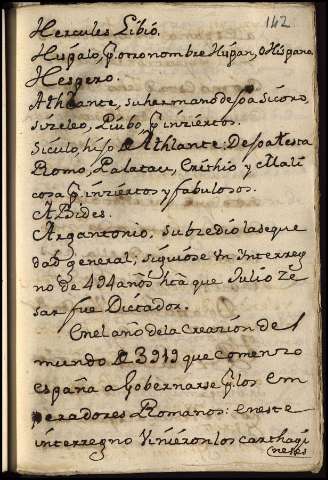 142
Hercules Libió.
Hispalo, q̃. otro nombre Hispan, o Hispano
Hespero.
Athlante, su hermano despa Sicoro
Siceleo, Lusbo q̃ inziertos.
Siculo, hijo de Athlante: Despa testa
Romo, Palatuu, Erithio y Mali
cosa q̃ inziertos y fabulosos.
Abides.
Argantonio, subzedio la seque
dad general; siguiose Vn interreg
no de 494 años hta que Julio Ze
sar fue Dictador.
En el año de la Creazión del
mundo de 3919 que comenzo
españa a Gobernarse q̃. los Em
peradores Romanos: en este
interregno Viniéron los carthagi
neses